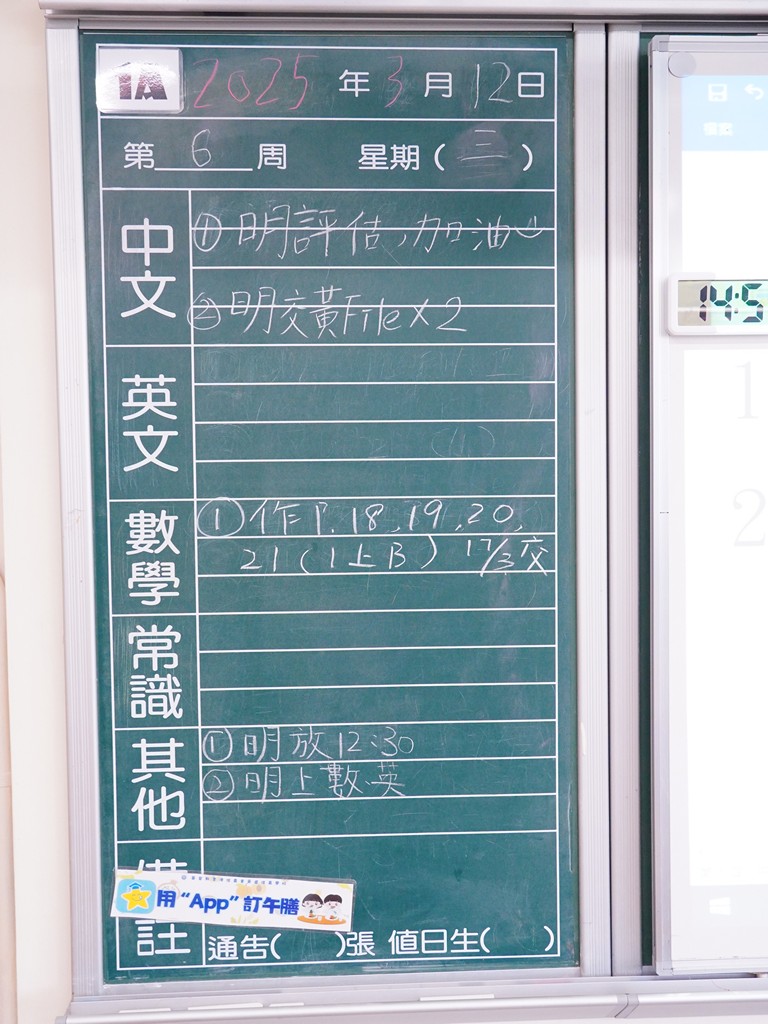 1A 2025 年 3 月 12 日
第 6 周 星期 ( 三 )
中文
① 明評估，加油
② 明交黃File x 2
英文
數學
① 作 P. 18, 19, 20,
21 (1上B) 17/3交
常識
其他
① 明放 12:30
② 明上數、英
備註
用 “App” 訂午膳
通告( )張 值日生( )
14:5
1
2